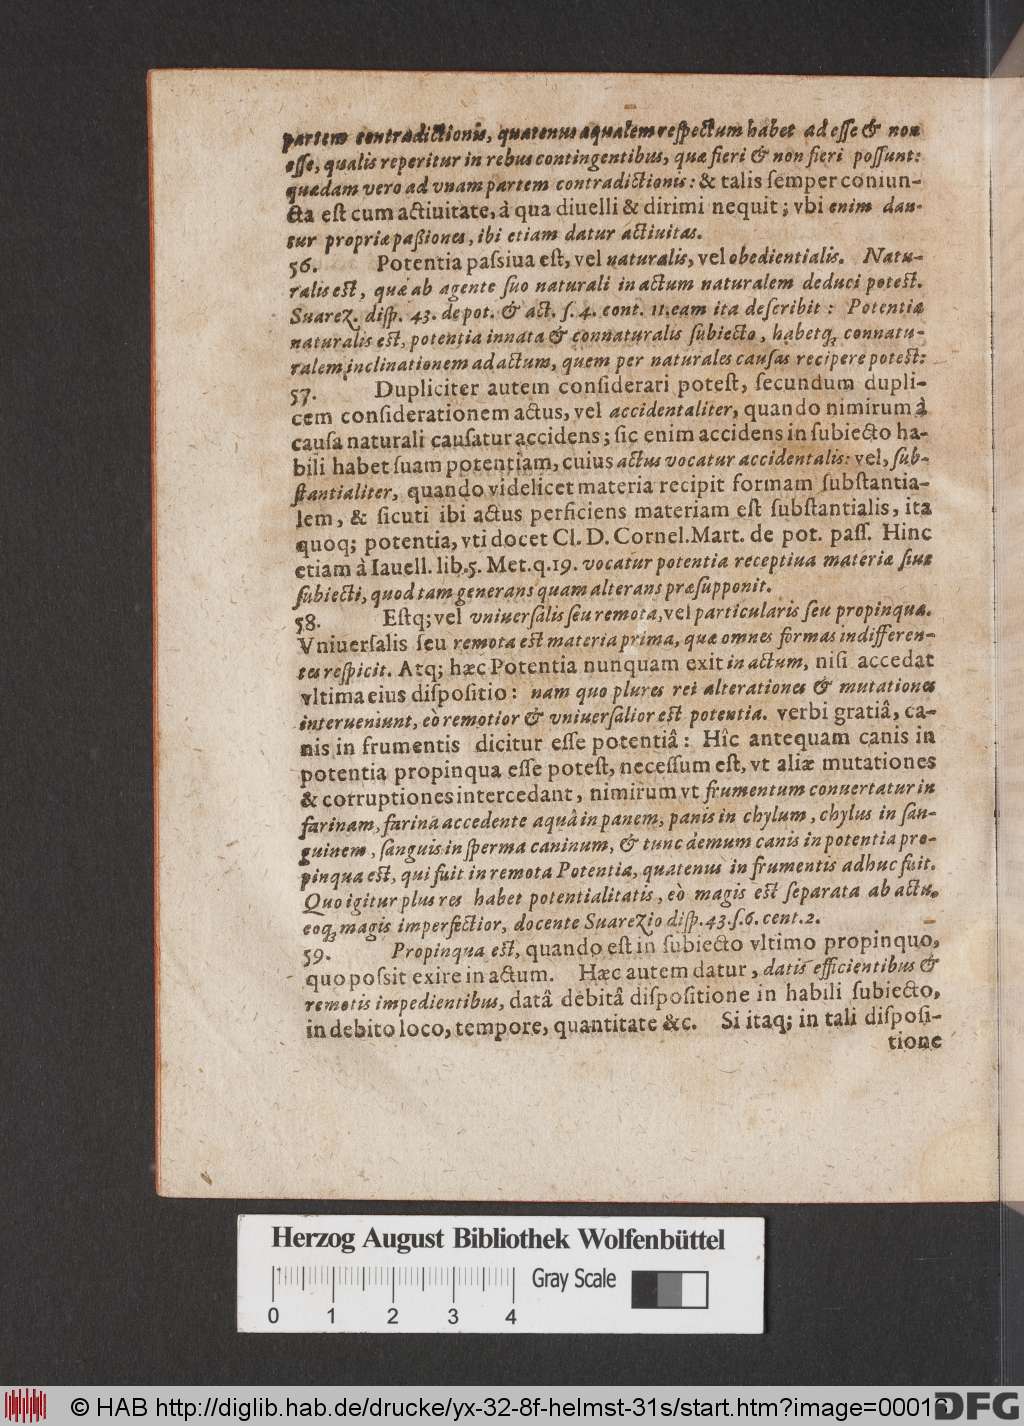 partem contradictionis, quatenus aqualem reſpectum habet ad eſſe & non
eſſe, qualis reperitur in rebus contingentibus, quæ fieri & non fieri poſſunt:
quædam vero ad vnam partem contradictionis: & talis ſemper coniun-
cta eſt cum actiuitate, à qua diuelli & dirimi nequit; vbi enim dan-
tur propriæ paßiones, ibi etiam datur actiuitas.
56. Potentia paſsiua eſt, vel naturalis, vel obedientialis. Natu-
ralis eſt, quæ ab agente ſuo naturali in actum naturalem deduci poteſt.
Suarez. diſp. 43. de pot. & act. ſ. 4. cont. 11. eam ita deſcribit: Potentia
naturalis eſt, potentia innata & connaturalis ſubiecto, habetq; connatu-
ralem inclinationem ad actum, quem per naturales cauſas recipere poteſt:
57. Dupliciter autem conſiderari poteſt, ſecundum dupli-
cem conſiderationem actus, vel accidentaliter, quando nimirum à
cauſa naturali cauſatur accidens; ſic enim accidens in ſubiecto ha-
bili habet ſuam potentiam, cuius actus vocatur accidentalis: vel, ſub-
ſtantialiter, quando videlicet materia recipit formam ſubſtantia-
lem, & ſicuti ibi actus perficiens materiam eſt ſubſtantialis, ita
quoq; potentia, vti docet Cl. D. Cornel. Mart. de pot. paſſ. Hinc
etiam à Iauell. lib. 5. Met. q. 19. vocatur potentia receptiua materiæ ſiue
ſubiecti, quod tam generans quam alterans præſupponit.
58. Eſtq; vel vniuerſalis ſeu remota, vel particularis ſeu propinqua.
Vniuerſalis ſeu remota eſt materia prima, quæ omnes formas indifferen-
tes reſpicit. Atq; hæc Potentia nunquam exit in actum, niſi accedat
vltima eius diſpoſitio: nam quo plures rei alterationes & mutationes
interueniunt, eò remotior & vniuerſalior eſt potentia. verbi gratiâ, ca-
nis in frumentis dicitur eſſe potentiâ: Hîc antequam canis in
potentia propinqua eſſe poteſt, neceſſum eſt, vt aliæ mutationes
& corruptiones intercedant, nimirum vt frumentum conuertatur in
farinam, farina accedente aquâ in panem, panis in chylum, chylus in ſan-
guinem, ſanguis in ſperma caninum, & tunc demum canis in potentia pro-
pinqua eſt, qui fuit in remota Potentia, quatenus in frumentis adhuc fuit.
Quo igitur plus res habet potentialitatis, eò magis eſt ſeparata ab actu,
eoq; magis imperfectior, docente Suarezio diſp. 43. ſ. 6. cent. 2.
59. Propinqua eſt, quando eſt in ſubiecto vltimo propinquo,
quo poſsit exire in actum. Hæc autem datur, datis efficientibus &
remotis impedientibus, datâ debitâ diſpoſitione in habili ſubiecto,
in debito loco, tempore, quantitate &c. Si itaq; in tali diſpoſi-
tione
Herzog August Bibliothek Wolfenbüttel
Gray Scale
0 1 2 3 4
© HAB http://diglib.hab.de/drucke/yx-32-8f-helmst-31s/start.htm?image=00016
DFG